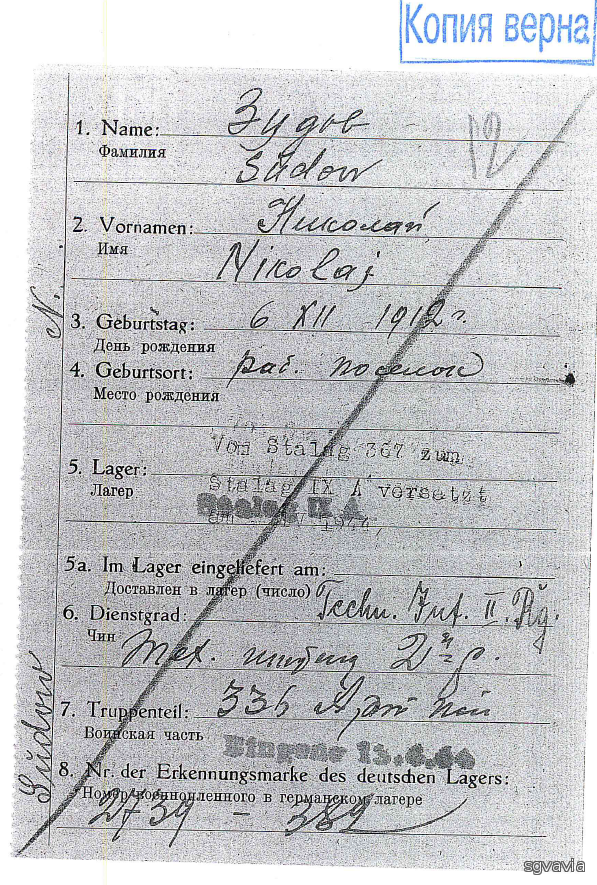 Копия верна
12
1. Name: Зудов
Фамилия
Sudow
2. Vornamen: Николай
Имя
Nikolaj
N.
3. Geburtstag: 6 XII 1912 г.
День рождения
4. Geburtsort: раб. поселок
Место рождения
Von Stalag 367 zum
5. Lager: Stalag IX A versetzt
Лагер
Stalag IX A
5a. Im Lager eingeliefert am:
Доставлен в лагер (число)
6. Dienstgrad: Techn. Int. II. Rg.
Чин
Тех. интен 2 р.
7. Truppenteil: 336
Воинская часть
Eingang 13.6.44
8. Nr. der Erkennungsmarke des deutschen Lagers:
Номер военнопленного в германском лагере
2739 - 389
Sudow
sgvavia